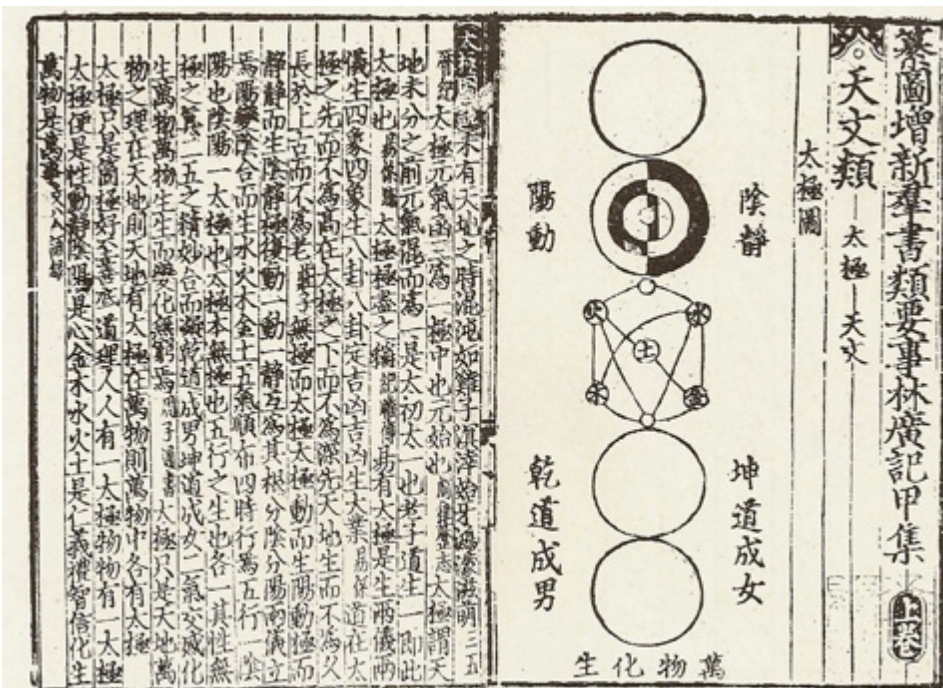 纂圖增新羣書類要事林廣記甲集
上卷
天文類 太極 天文
太極圖
陰靜
陽動
水
火
土
金
木
坤道成女
乾道成男
萬物化生
太極 未有天地之時混沌如雞子溟涬始牙濛鴻滋萌 三五
曆紀 太極元氣函三為一極中也元始也 太極謂天
地未分之前元氣混而為一是太初太一也老子道生一即此
太極也 易係疏 太極極盡之稱 易有太極是生兩儀兩
儀生四象四象生八卦八卦定吉凶吉凶生大業 易係 道在太
極之先而不為高在太極之下而不為深先天地生而不為久
長於上古而不為老 莊子 無極而太極太極動而生陽動極而
靜靜而生陰靜極復動一動一靜互為其根分陰分陽兩儀立
焉陽變陰合而生水火木金土五氣順布四時行焉五行一陰
陽也陰陽一太極也太極本無極也五行之生也各一其性無
極之真二五之精妙合而凝乾道成男坤道成女二氣交感化
生萬物萬物生生而變化無窮焉 周子通書 太極只是天地萬
物之理在天地則天地有太極在萬物則萬物中各有太極
太極只是箇極好至善底道理人人有一太極物物有一太極
太極便是性動靜陰陽是心金木水火土是仁義禮智信化生
萬物是萬事 文公語錄